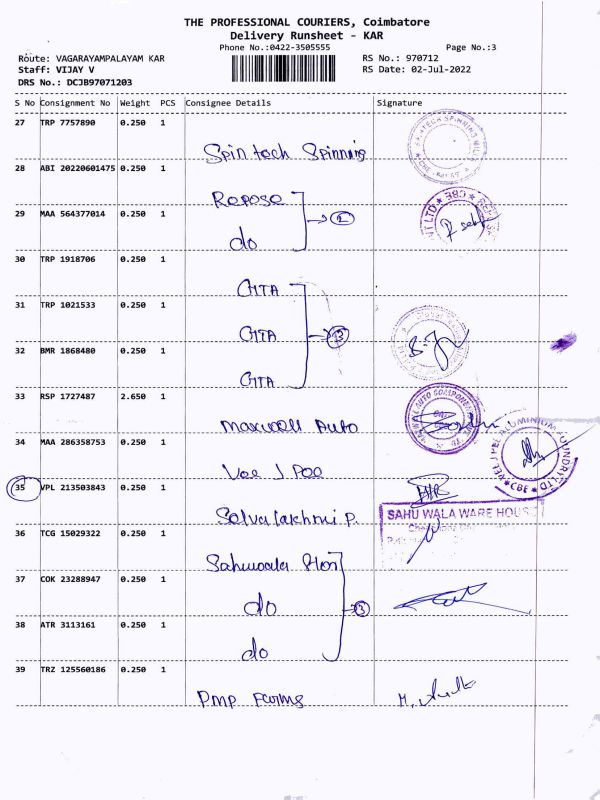 THE PROFESSIONAL COURIERS, Coimbatore
Delivery Runsheet - KAR
Phone No.:0422-3505555 Page No.:3
Route: VAGARAYAMPALAYAM KAR RS No.: 970712
Staff: VIJAY V RS Date: 02-Jul-2022
DRS No.: DCJB97071203
S No Consignment No Weight PCS Consignee Details Signature
27 TRP 7757890 0.250 1
Spintech Spinning
28 ABI 20220601475 0.250 1
Repose
29 MAA 564377014 0.250 1
do
30 TRP 1918706 0.250 1
GTA
31 TRP 1021533 0.250 1
GTA
32 BMR 1868480 0.250 1
GTA
33 RSP 1727487 2.650 1
Maxwell Auto
34 MAA 286358753 0.250 1
Vee J Pee
35 VPL 213503843 0.250 1
Selvalakhmi P.
SAHU WALA WARE HOUS
36 TCG 15029322 0.250 1
37 COK 23288947 0.250 1
do
3
38 ATR 3113161 0.250 1
do
39 TRZ 125560186 0.250 1
PMP Farms